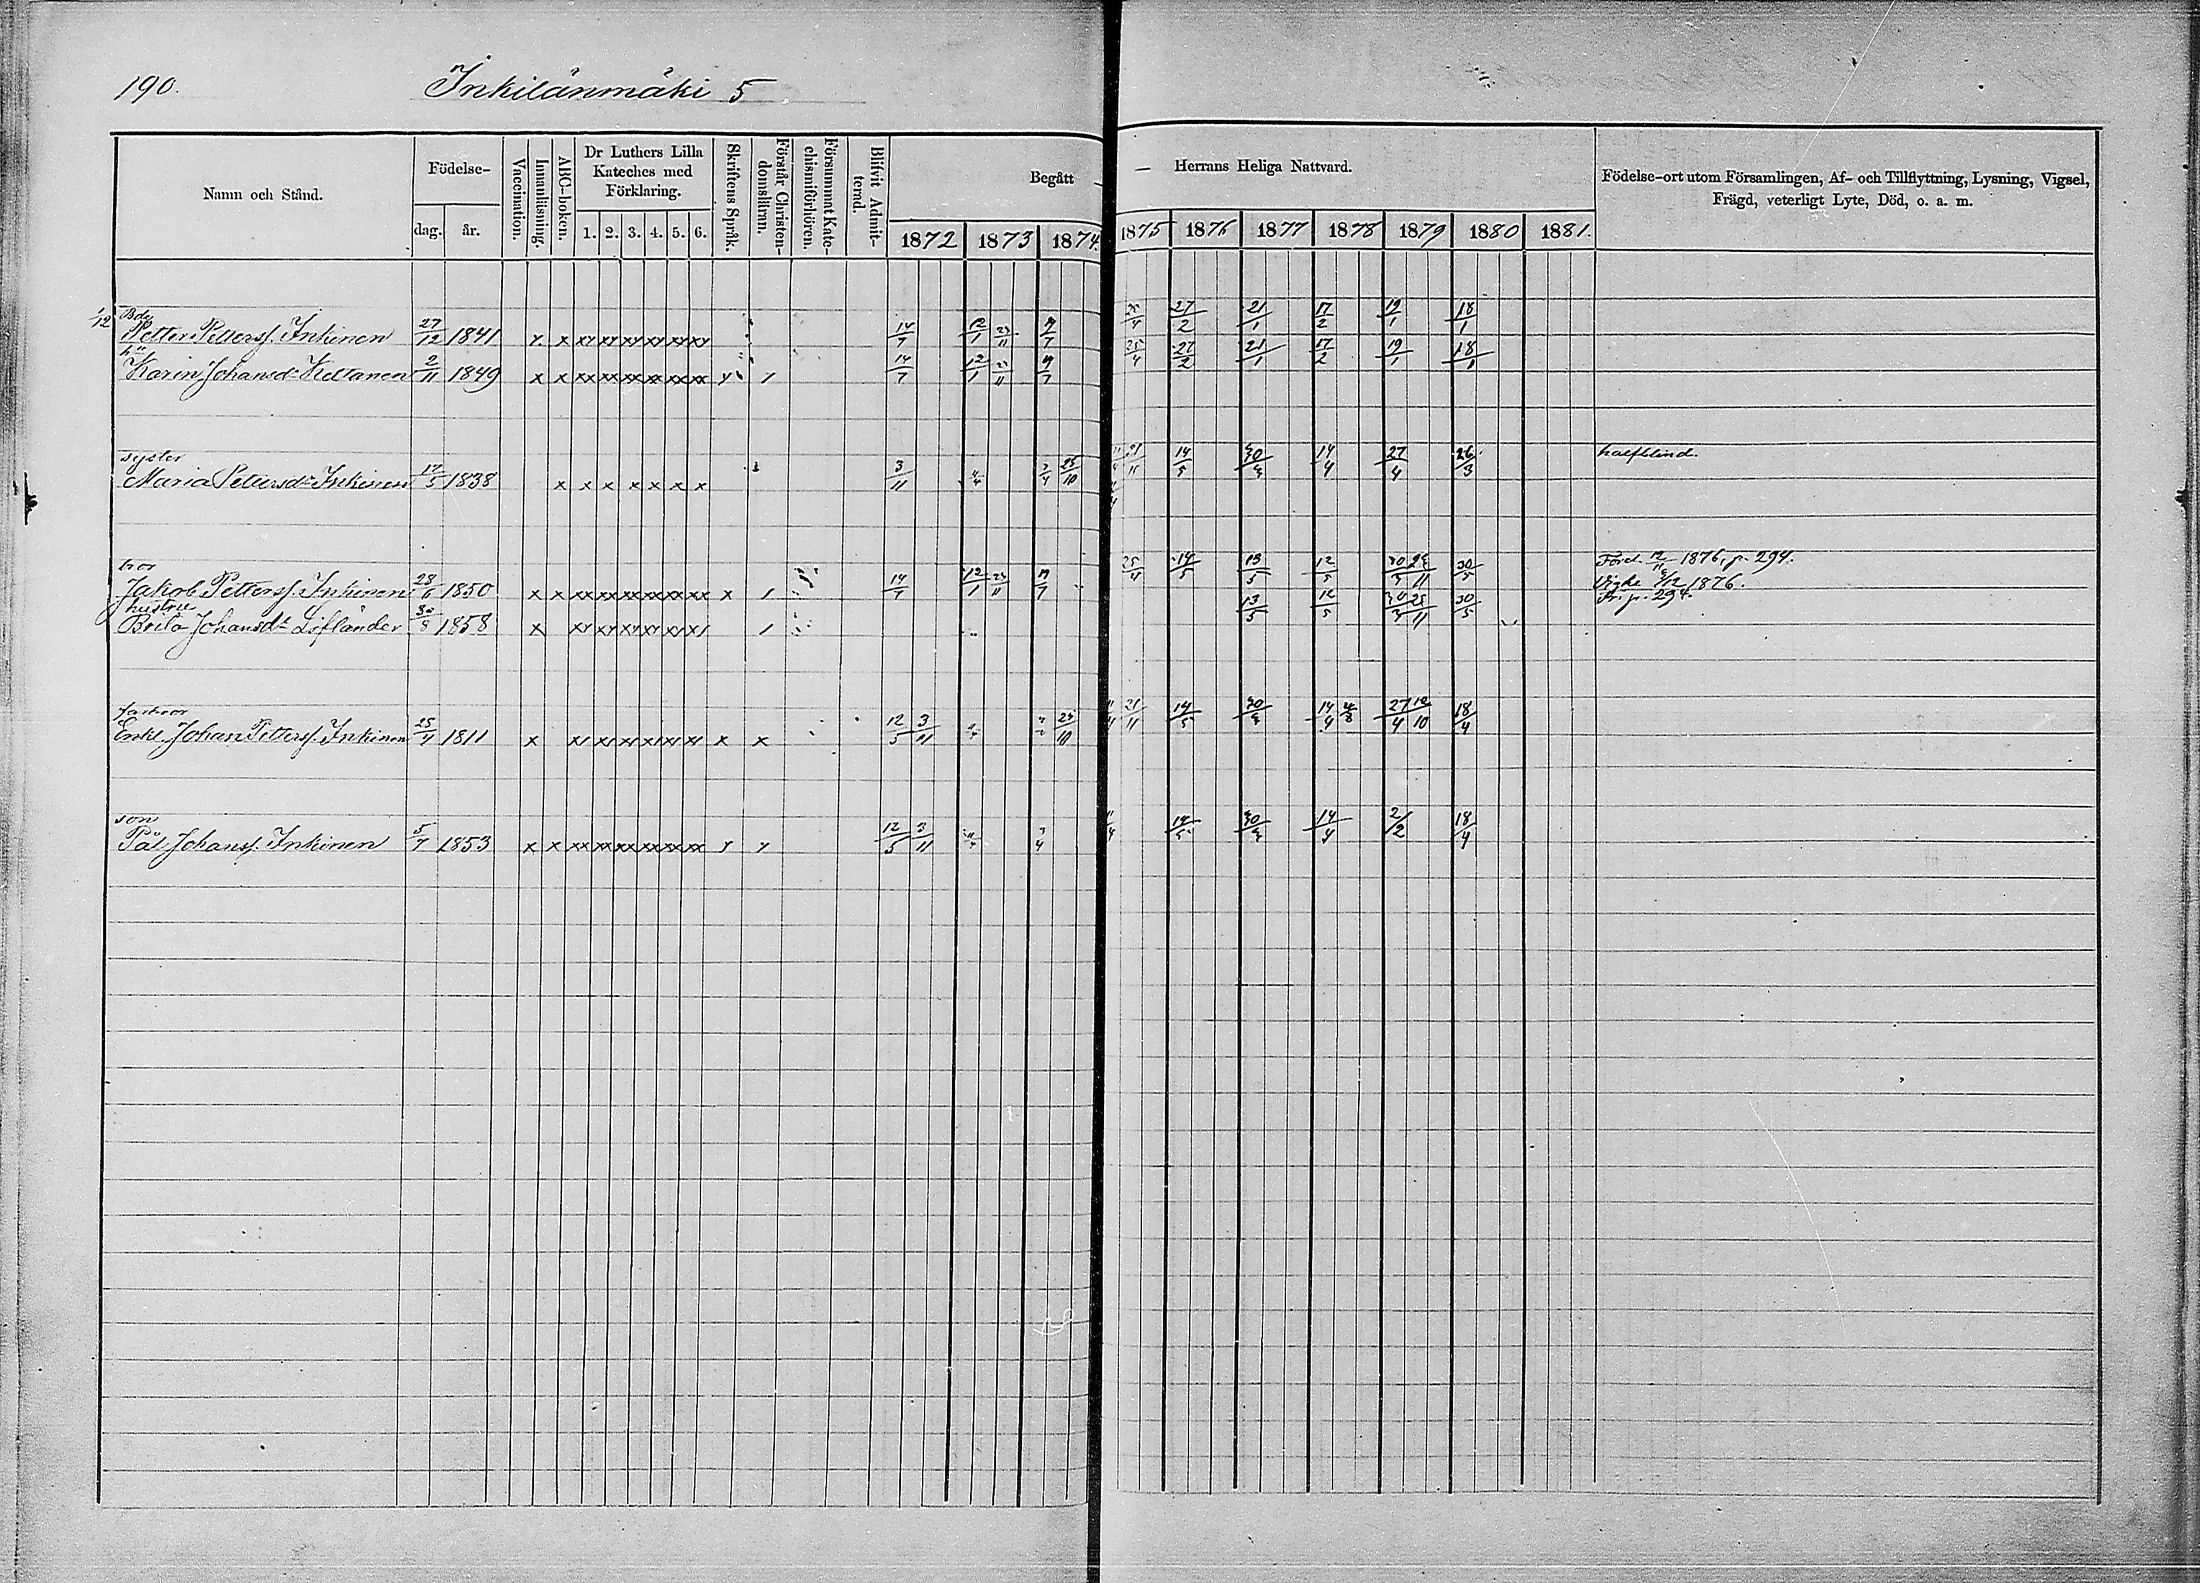 190.
Inkilänmäki 5
Namn och Stånd.
Födelse-
dag.
år.
Vaccination.
Innanläsning.
ABC-boken.
Dr Luthers Lilla
Kateches med
Förklaring.
1. 2. 3. 4. 5. 6.
Skriftens Språk.
Förstår Christen-
domsläran.
Försummat Kate-
chismiförhören.
Blifvit Admit-
terad.
Begått —
— Herrans Heliga Nattvard.
1872 1873 1874 1875 1876 1877 1878 1879 1880 1881.
Födelse-ort utom Församlingen, Af- och Tillflyttning, Lysning, Vigsel,
Frägd, veterligt Lyte, Död, o. a. m.
1/12 Bde
Petter Petterss. Inkinen 27/12 1841 x x xx xx xx xx xx 14/7 12/1 23/11 9/7 25/4 27/2 21/1 17/2 19/1 18/1
hu
Karin Johansdr Keltanen 2/11 1849 x x xx xx xx xx xx xx 14/7 12/1 23/11 9/7 25/4 27/2 21/1 17/2 19/1 18/1
syster
Maria Pettersdr Inkinen 17/5 1838 x x x x x x x 3/11 25/10 21/11 14/5 14/4 27/4 26/3 halfblind.
bror
Jakob Petterss. Inkinen 28/6 1850 x x xx xx xx xx xx xx x 14/7 12/1 23/11 9/7 25/4 14/5 13/5 12/5 30/5 12/11 1876, p. 294.
Vigde 1/12 1876.
hustru
Brita Johansdr Lifländer 30/8 1858 x 13/5 12/5 30/5 Fr. p. 294.
farbror
Enkl. Johan Petterss. Inkinen 25/4 1811 x x x 12/5 3/11 23/10 11/4 21/11 14/5 14/4 4/8 27/4 12/10 18/4
son
Pål Johanss. Inkinen 5/7 1853 x x xx xx xx xx xx xx 12/5 3/11 3/4 11/4 14/5 14/4 2/2 18/4